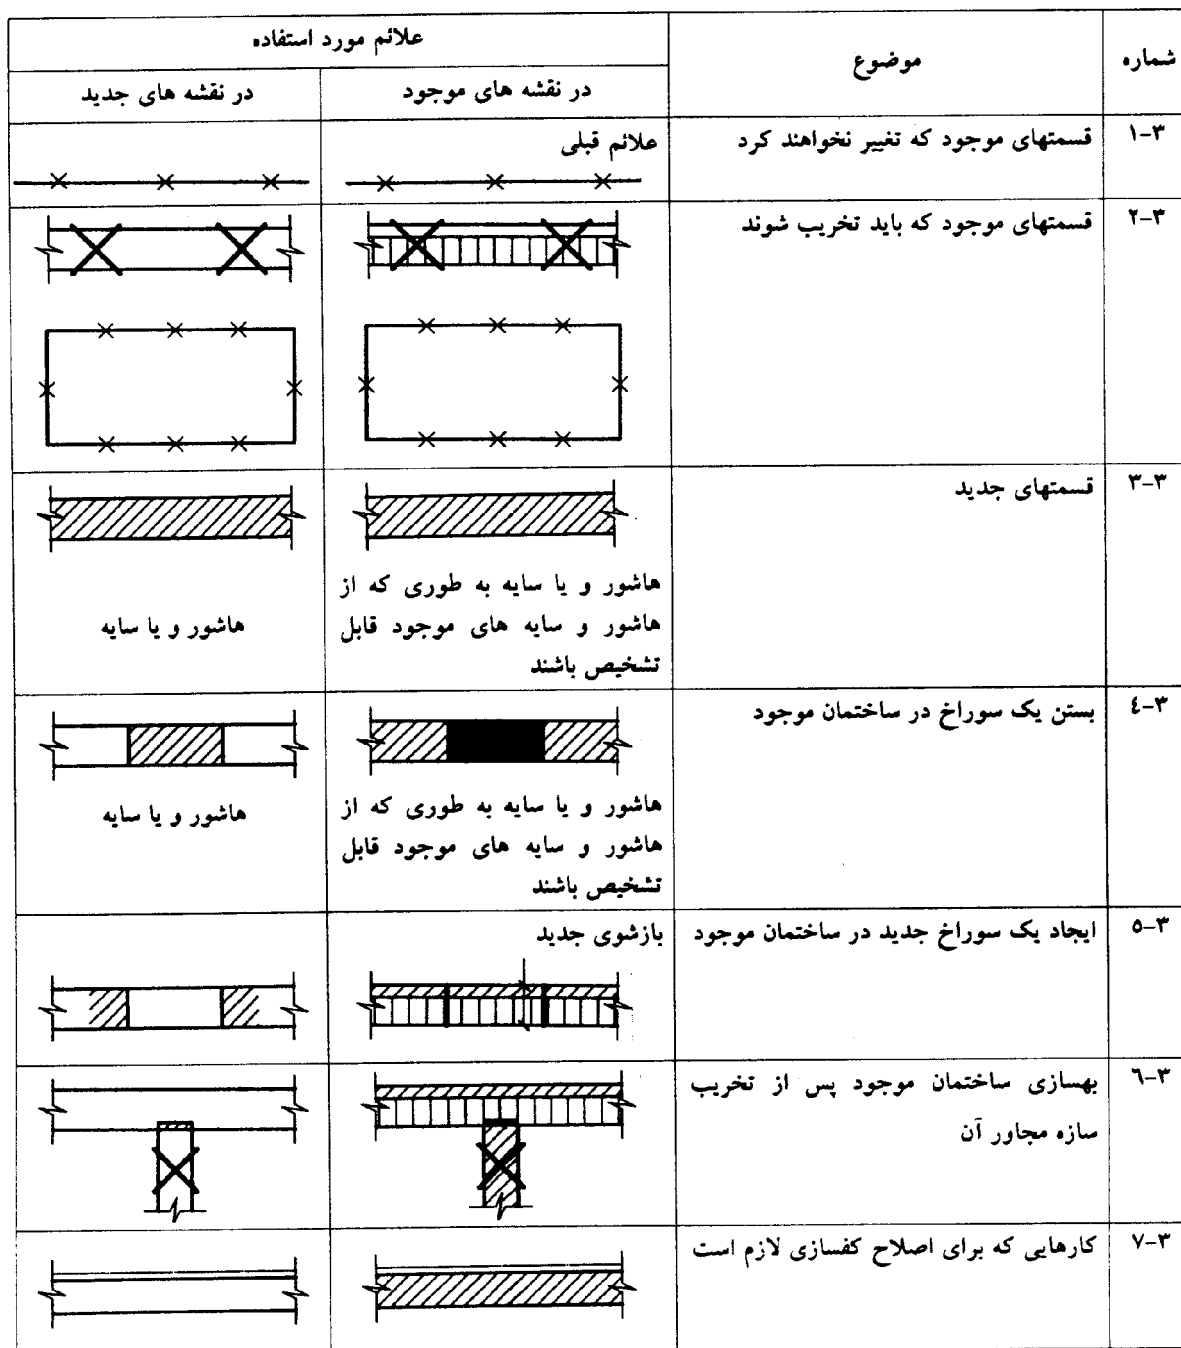 شماره
موضوع
علائم مورد استفاده
در نقشه های موجود
در نقشه های جدید
۳-۱
قسمتهای موجود که تغییر نخواهند کرد
علائم قبلی
۳-۲
قسمتهای موجود که باید تخریب شوند
۳-۳
قسمتهای جدید
هاشور و یا سایه به طوری که از
هاشور و سایه های موجود قابل
تشخیص باشند
هاشور و یا سایه
۳-٤
بستن یک سوراخ در ساختمان موجود
هاشور و یا سایه به طوری که از
هاشور و سایه های موجود قابل
تشخیص باشند
هاشور و یا سایه
۳-٥
ایجاد یک سوراخ جدید در ساختمان موجود
بازشوی جدید
۳-٦
بهسازی ساختمان موجود پس از تخریب
سازه مجاور آن
۳-۷
کارهایی که برای اصلاح کفسازی لازم است